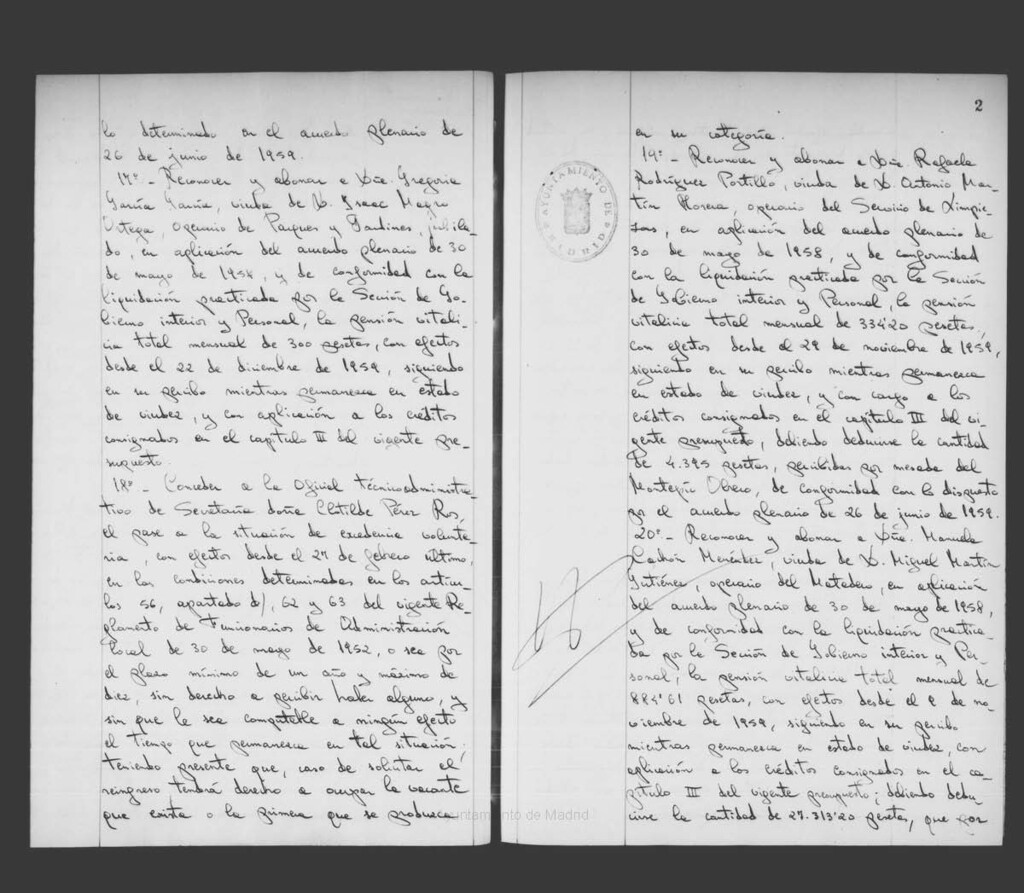 lo determinado en el acuerdo plenario de
26 de junio de 1959.
17º.- Reconocer y abonar a Dña. Gregoria
García García, viuda de D. Isaac Magro
Ortega, operario de Parques y Jardines, jubila-
do, en aplicación del acuerdo plenario de 30
de mayo de 1958, y de conformidad con la
liquidación practicada por la Sección de Go-
bierno interior y Personal, la pensión vitali-
cia total mensual de 300 pesetas, con efectos
desde el 22 de diciembre de 1959, siguiendo
en su percibo mientras permanezca en estado
de viudez, y con aplicación a los créditos
consignados en el capítulo III del vigente pre-
supuesto.
18º.- Conceder a la Oficial Técnicoadministra-
tivo de Secretaría doña Clotilde Pérez Ros,
el pase a la situación de excedencia volunta-
ria, con efectos desde el 27 de febrero último,
en las condiciones determinadas en los artícu-
los 56, apartado d), 62 y 63 del vigente Re-
glamento de Funcionarios de Administración
Local de 30 de mayo de 1952, o sea por
el plazo mínimo de un año y máximo de
diez, sin derecho a percibir haber alguno, y
sin que le sea computable a ningún efecto
el tiempo que permanezca en tal situación;
teniendo presente que, caso de solicitar el
reingreso tendrá derecho a ocupar la vacante
que exista o la primera que se produzca
2
en su categoría.
19º.- Reconocer y abonar a Dña. Rafaela
Rodríguez Portillo, viuda de D. Antonio Mar-
tín, operario del Servicio de Limpie-
zas, en aplicación del acuerdo plenario de
30 de mayo de 1958, y de conformidad
con la liquidación practicada por la Sección
de Gobierno interior y Personal, la pensión
vitalicia total mensual de 334'20 pesetas,
con efectos desde el 29 de noviembre de 1959,
siguiendo en su percibo mientras permanezca
en estado de viudez, y con cargo a los
créditos consignados en el capítulo III del vi-
gente presupuesto, debiendo deducirse la cantidad
de 4.395 pesetas, percibidas por mesada del
Montepío Obrero, de conformidad con lo dispuesto
por el acuerdo plenario de 26 de junio de 1959.
20º.- Reconocer y abonar a Dña. Manuela
Menéndez, viuda de D. Miguel Martín
Gutiérrez, operario del Matadero, en aplicación
del acuerdo plenario de 30 de mayo de 1958,
y de conformidad con la liquidación practica-
da por la Sección de Gobierno interior y Per-
sonal, la pensión vitalicia total mensual de
884'61 pesetas, con efectos desde el 9 de no-
viembre de 1959, siguiendo en su percibo
mientras permanezca en estado de viudez, con
aplicación a los créditos consignados en el ca-
pítulo III del vigente presupuesto; debiendo dedu-
cirse la cantidad de 27.313'20 pesetas, que por
AYUNTAMIENTO DE MADRID
Ayuntamiento de Madrid